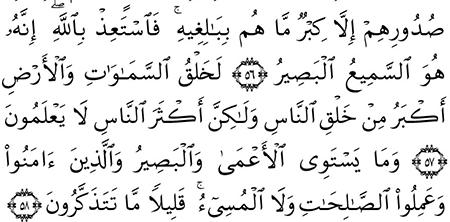 صُدُورِهِمْ إِلَّا كِبْرٌ مَّا هُم بِبَـٰلِغِيهِ ۚ فَٱسْتَعِذْ بِٱللَّهِ ۖ إِنَّهُۥ
هُوَ ٱلسَّمِيعُ ٱلْبَصِيرُ ﴿٥٦﴾ لَخَلْقُ ٱلسَّمَـٰوَٰتِ وَٱلْأَرْضِ
أَكْبَرُ مِنْ خَلْقِ ٱلنَّاسِ وَلَـٰكِنَّ أَكْثَرَ ٱلنَّاسِ لَا يَعْلَمُونَ
﴿٥٧﴾ وَمَا يَسْتَوِى ٱلْأَعْمَىٰ وَٱلْبَصِيرُ وَٱلَّذِينَ ءَامَنُوا۟
وَعَمِلُوا۟ ٱلصَّـٰلِحَـٰتِ وَلَا ٱلْمُسِىٓءُ ۚ قَلِيلًا مَّا تَتَذَكَّرُونَ ﴿٥٨﴾